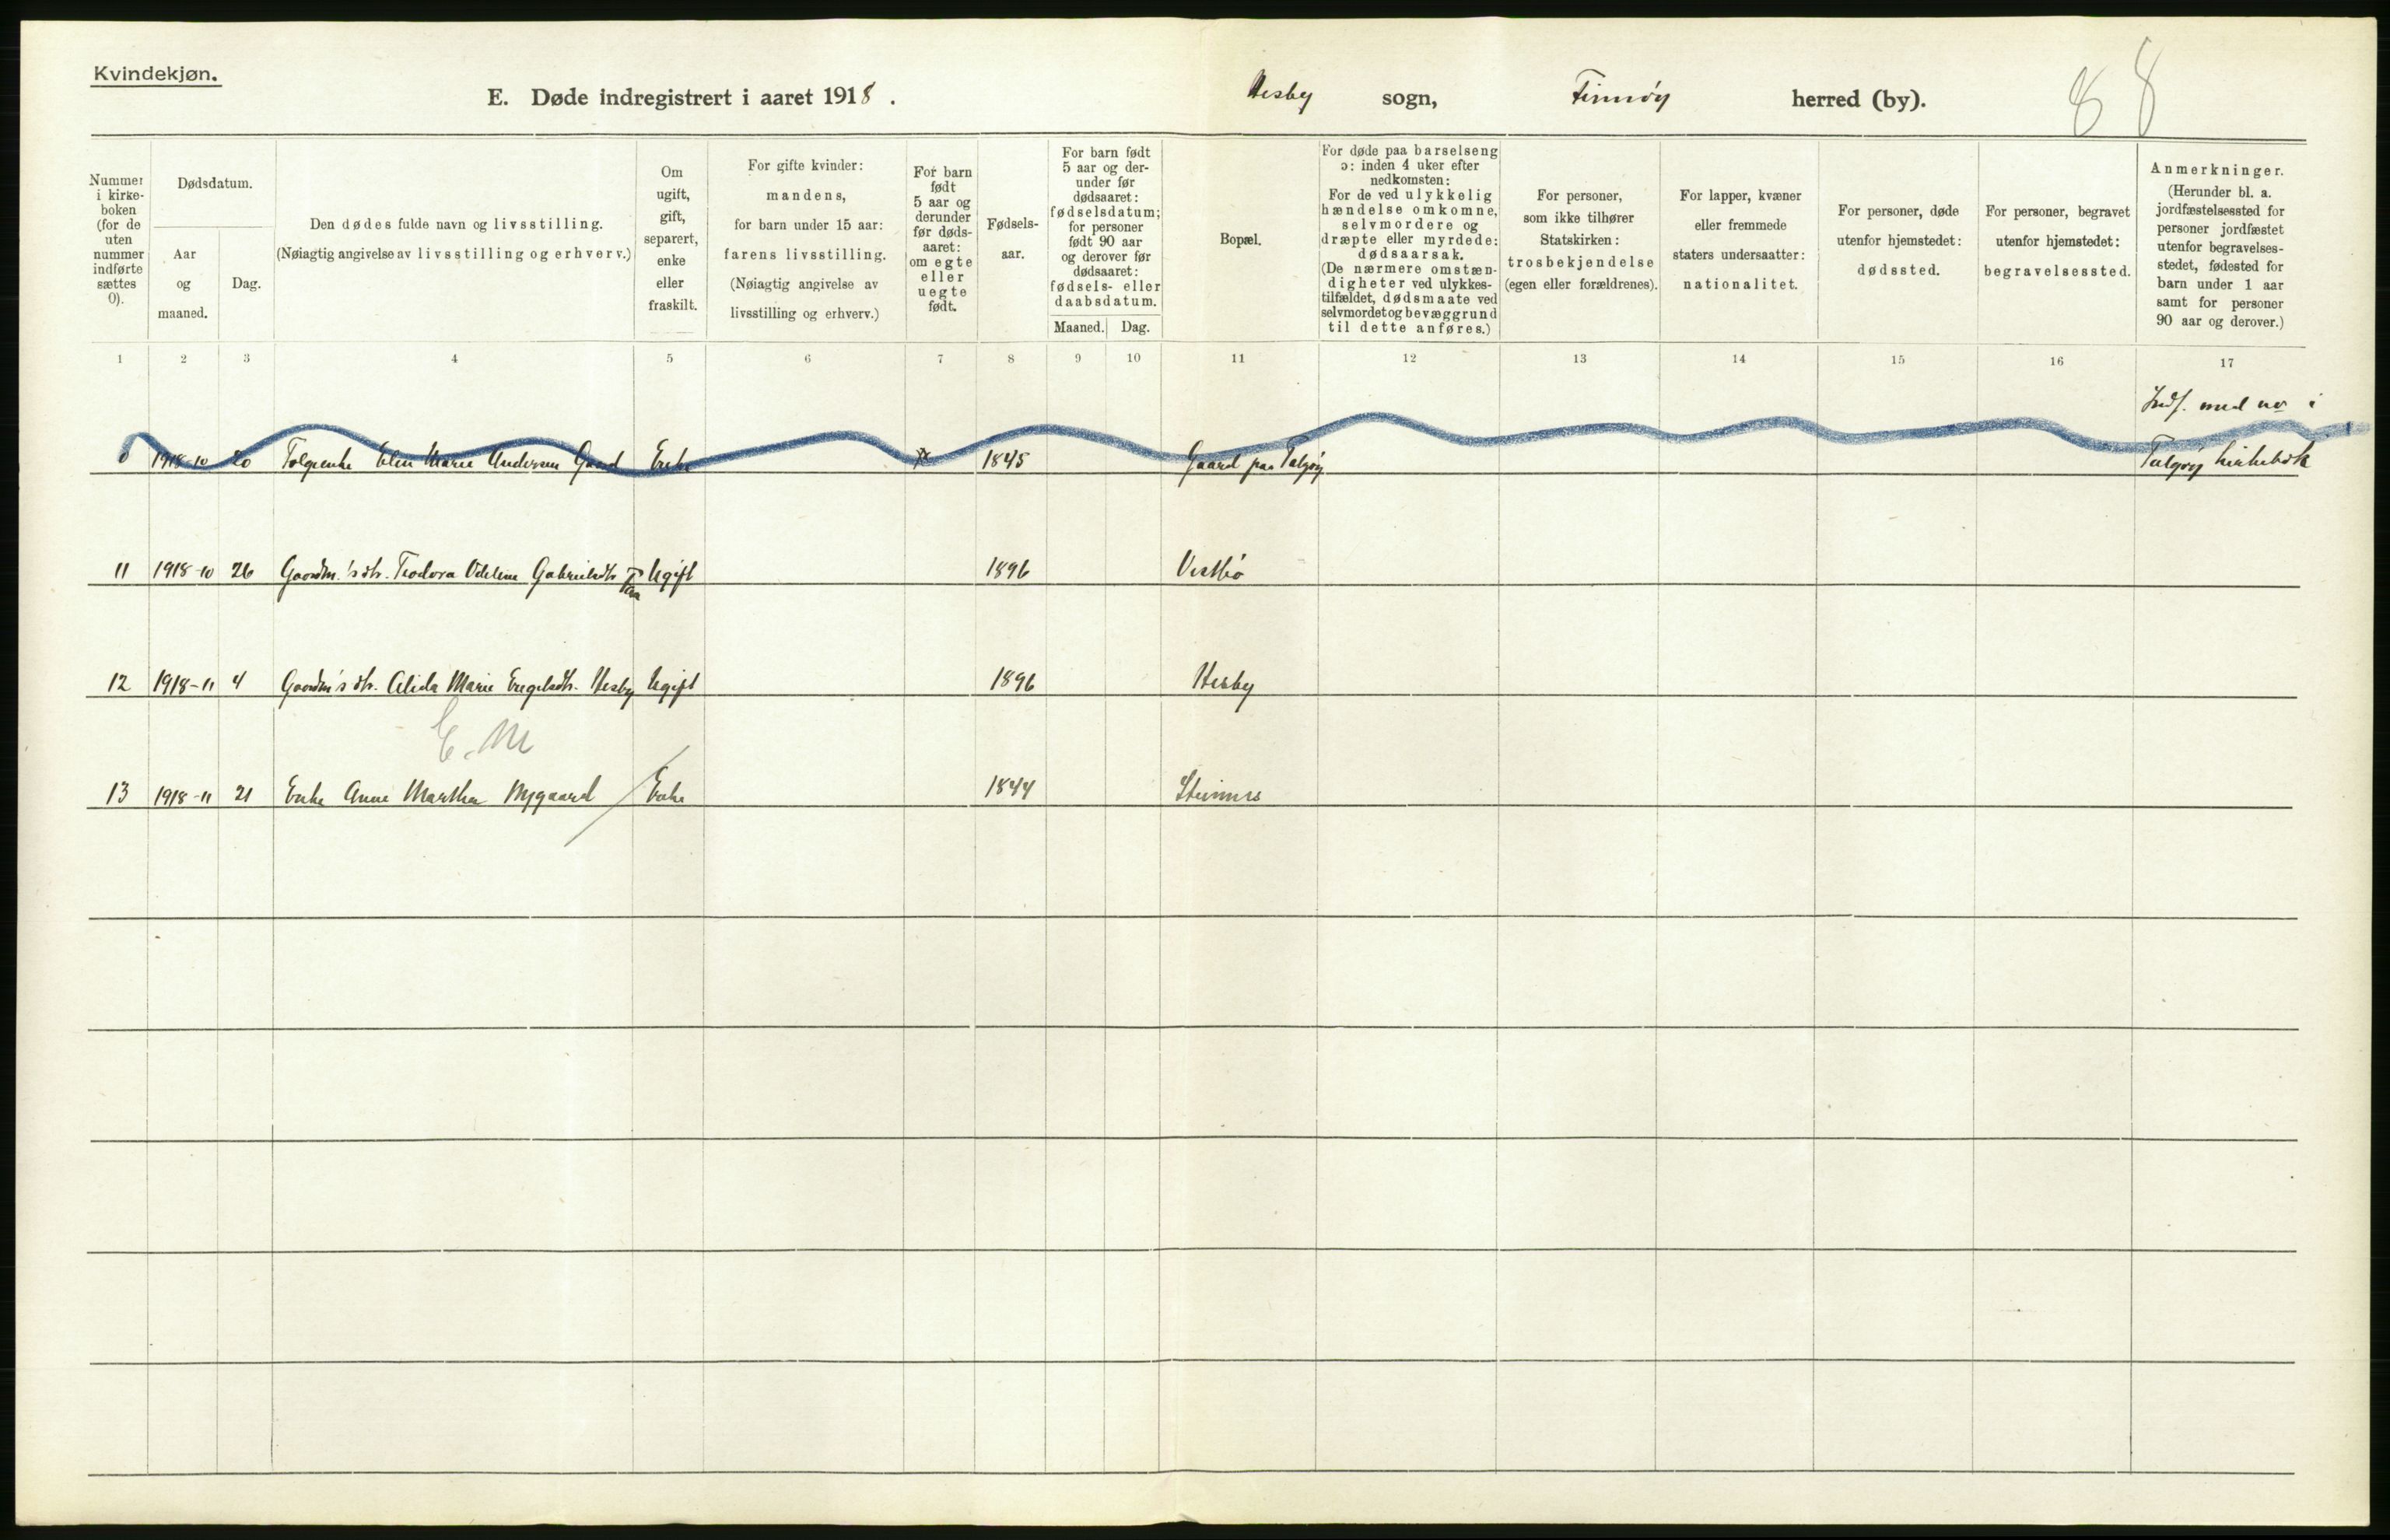 Kvindekjøn.
E. Døde indregistrert i aaret 1918. Hesby sogn, Finnøy herred (by). 8 8
Nummer i kirke-
boken
(for de
uten
nummer
indførte
sættes
0).
Dødsdatum.
Aar
og
maaned.
Dag.
Den dødes fulde navn og livsstilling.
(Nøiagtig angivelse av livsstilling og erhverv.)
Om
ugift,
gift,
separert,
enke
eller
fraskilt.
For gifte kvinder:
mandens,
for barn under 15 aar:
farens livsstilling.
(Nøiagtig angivelse av
livsstilling og erhverv.)
For barn
født
5 aar og
derunder
før døds-
aaret:
om egte
eller
uegte
født.
Fødsels-
aar.
For barn født
5 aar og der-
under før
dødsaaret:
fødselsdatum;
for personer
født 90 aar
og derover før
dødsaaret:
fødsels- eller
daabsdatum.
Maaned. Dag.
Bopæl.
For døde paa barselseng
ɔ: inden 4 uker efter
nedkomsten:
For de ved ulykkelig
hændelse omkomne,
selvmordere og
dræpte eller myrdede:
dødsaarsak.
(De nærmere omstæn-
digheter ved ulykkes-
tilfældet, dødsmaate ved
selvmordet og bevæggrund
til dette anføres.)
For personer,
som ikke tilhører
Statskirken:
trosbekjendelse
(egen eller forældrenes).
For lapper, kvæner
eller fremmede
staters undersaatter:
nationalitet.
For personer, døde
utenfor hjemstedet:
dødssted.
For personer, begravet
utenfor hjemstedet:
begravelsessted.
Anmerkninger.
(Herunder bl. a.
jordfæstelsessted for
personer jordfæstet
utenfor begravelses-
stedet, fødested for
barn under 1 aar
samt for personer
90 aar og derover.)
1 2 3 4 5 6 7 8 9 10 11 12 13 14 15 16 17
Indf. med no i
0 1918-10 20 Elen Marie Andersen Gaard Enke 1845 Gaard paa Talgøy Talgøy kirkebok
11 1918-10 26 Gaardm.'s dtr. Teodora Gabrielsdtr Ugift 1896 Vestbø
12 1918-11 4 Gaardm's dtr. Alida Marie Engelsdtr. Hesby Ugift 1896 Hesby
E. M
13 1918-11 21 Enke Anne Martha Nygaard Enke 1844 Steinnes